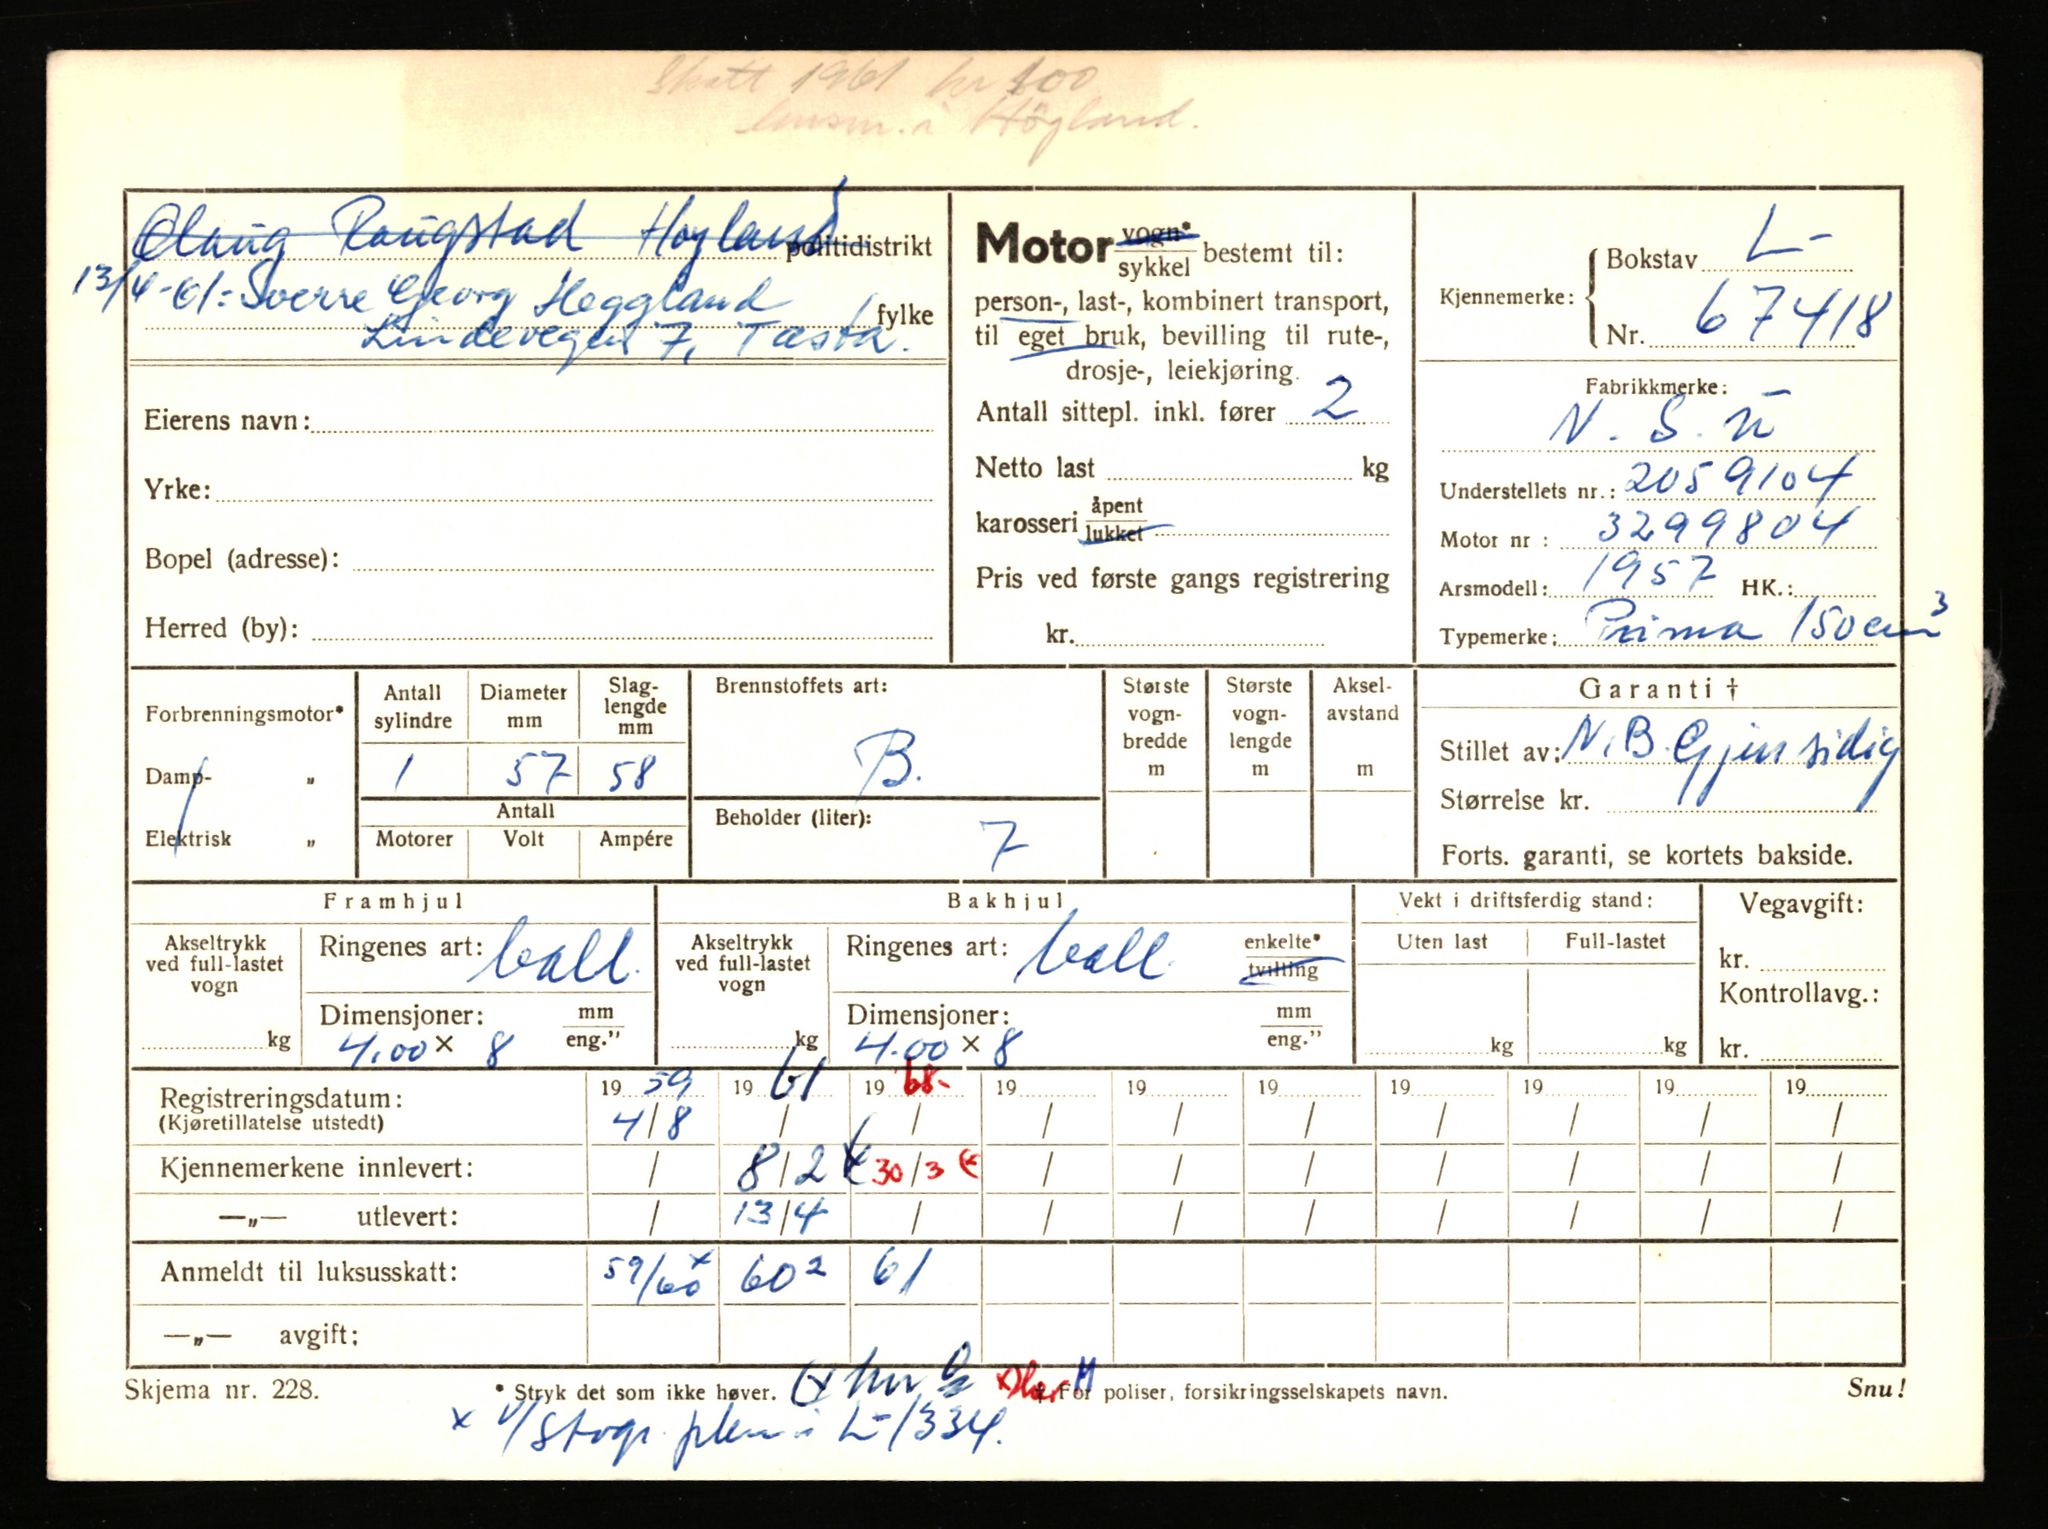 Skatt 1961 kr 100
lensm. i Högland.
Olaug Raugstad Høyland politidistrikt
13/4-61: Sverre Georg Heggland
Lindevegen 7, Tasta. fylke
Eierens navn:
Yrke:
Bopel (adresse):
Herred (by):
Motor vogn*
sykkel bestemt til:
person-, last-, kombinert transport,
til eget bruk, bevilling til rute-,
drosje-, leiekjøring.
Antall sittepl. inkl. fører 2
Netto last kg
karosseri åpent
lukket
Pris ved første gangs registrering
kr.
Kjennemerke: Bokstav L-
Nr. 67418
Fabrikkmerke:
N. S. U
Understellets nr.: 2059104
Motor nr : 3299804
Arsmodell: 1957 HK.:
Typemerke: Prima 150 cm3
Forbrenningsmotor*
Damp- „
Elektrisk „
Antall sylindre
1
Diameter mm
57
Slag-lengde mm
58
Antall
Motorer Volt Ampére
Brennstoffets art:
B.
Beholder (liter):
7
Største vogn-bredde m
Største vogn-lengde m
Aksel-avstand m
Garanti †
Stillet av: N.B. Gjensidig
Størrelse kr.
Forts. garanti, se kortets bakside.
Framhjul
Akseltrykk ved full-lastet vogn
kg
Ringenes art: ball.
Dimensjoner: mm
4.00 × 8 eng."
Bakhjul
Akseltrykk ved full-lastet vogn
kg
Ringenes art: ball. enkelte*
tvilling
Dimensjoner: mm
4.00 × 8 eng."
Vekt i driftsferdig stand:
Uten last Full-lastet
kg kg
Vegavgift:
kr.
Kontrollavg.:
kr.
Registreringsdatum: 19 59 19 61 19 68- 19 19 19 19 19 19 19
(Kjøretillatelse utstedt) 4/8 / / / / / / / / /
Kjennemerkene innlevert: / 8/2 x 30/3 / / / / / / /
—„— utlevert: / 13/4 / / / / / / / /
Anmeldt til luksusskatt: 59/60 x 60 2 61
—„— avgift:
Skjema nr. 228. * Stryk det som ikke høver. † For poliser, forsikringsselskapets navn. Snu!
x V/Stogs. L-1334.